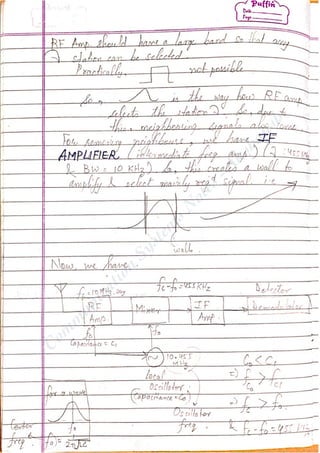 Puffin
Date
Page
RF Amp should have a large band so that any
station can be selected.
Practically, not possible
So, is the way how RF amp
selects the station. So, due to
this, neighbouring signals also come.
For removing neighbours, we have IF
AMPLIFIER (intermediate freq amp.) (2 455 kHz
& BW = 10 KHz) So, this creates a wall to
amplify & select mainly reqd signal. i.e
wall.
Now, we have
fs = 10 MHz say
fc-fo = 455 KHz
Detector
RF
Amp.
Mixer
IF
Amp.
Demodulator
fo
Capacitance = Cs
fo
10.455
MHz
local
Oscillator
(Capacitance = Co)
Oscillator
freq.
Co < Cs
for a wave
fo
Center
freq.